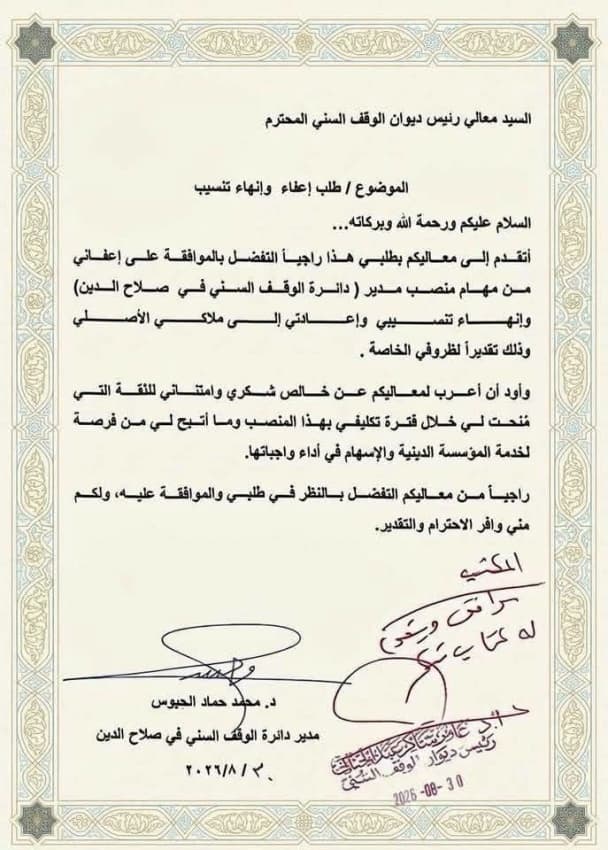 السيد معالي رئيس ديوان الوقف السني المحترم
الموضوع / طلب إعفاء وإنهاء تنسيب
السلام عليكم ورحمة الله وبركاته...
أتقدم إلى معاليكم بطلبي هذا راجياً التفضل بالموافقة على إعفائي
من مهام منصب مدير ( دائرة الوقف السني في صلاح الدين)
وإنهاء تنسيبي وإعادتي إلى ملاكي الأصلي
وذلك تقديراً لظروفي الخاصة .
وأود أن أعرب لمعاليكم عن خالص شكري وامتناني للثقة التي
مُنحت لي خلال فترة تكليفي بهذا المنصب وما أتيح لي من فرصة
لخدمة المؤسسة الدينية والإسهام في أداء واجباتها.
راجياً من معاليكم التفضل بالنظر في طلبي والموافقة عليه، ولكم
مني وافر الاحترام والتقدير.
المكتب
له كتاب
د. محمد حماد الجبوس
مدير دائرة الوقف السني في صلاح الدين
٢٠٢٦/٨/٣٠
أ.د. عامر شاكر
رئيس ديوان الوقف السني
2026 -08- 30